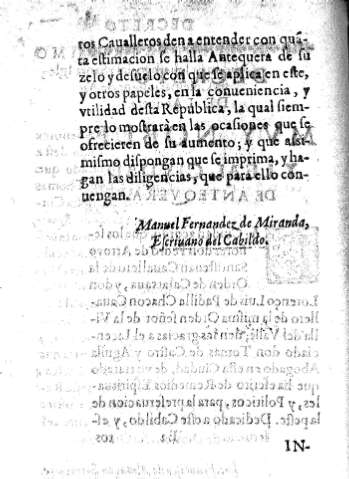 tos Caualleros den a entender con quã-
ta estimacion se halla Antequera de su
zelo y desuelo con que se aplica en este,
y otros papeles, en la conueniencia, y
vtilidad desta Republica, la qual siem-
pre lo mostrarà en las ocasiones que se
ofrecieren de su aumento; y que assi-
mismo dispongan que se imprima, y ha-
gan las diligencias, que para ello con-
uengan.
Manuel Fernandez de Miranda,
Escriuano del Cabildo.
IN-